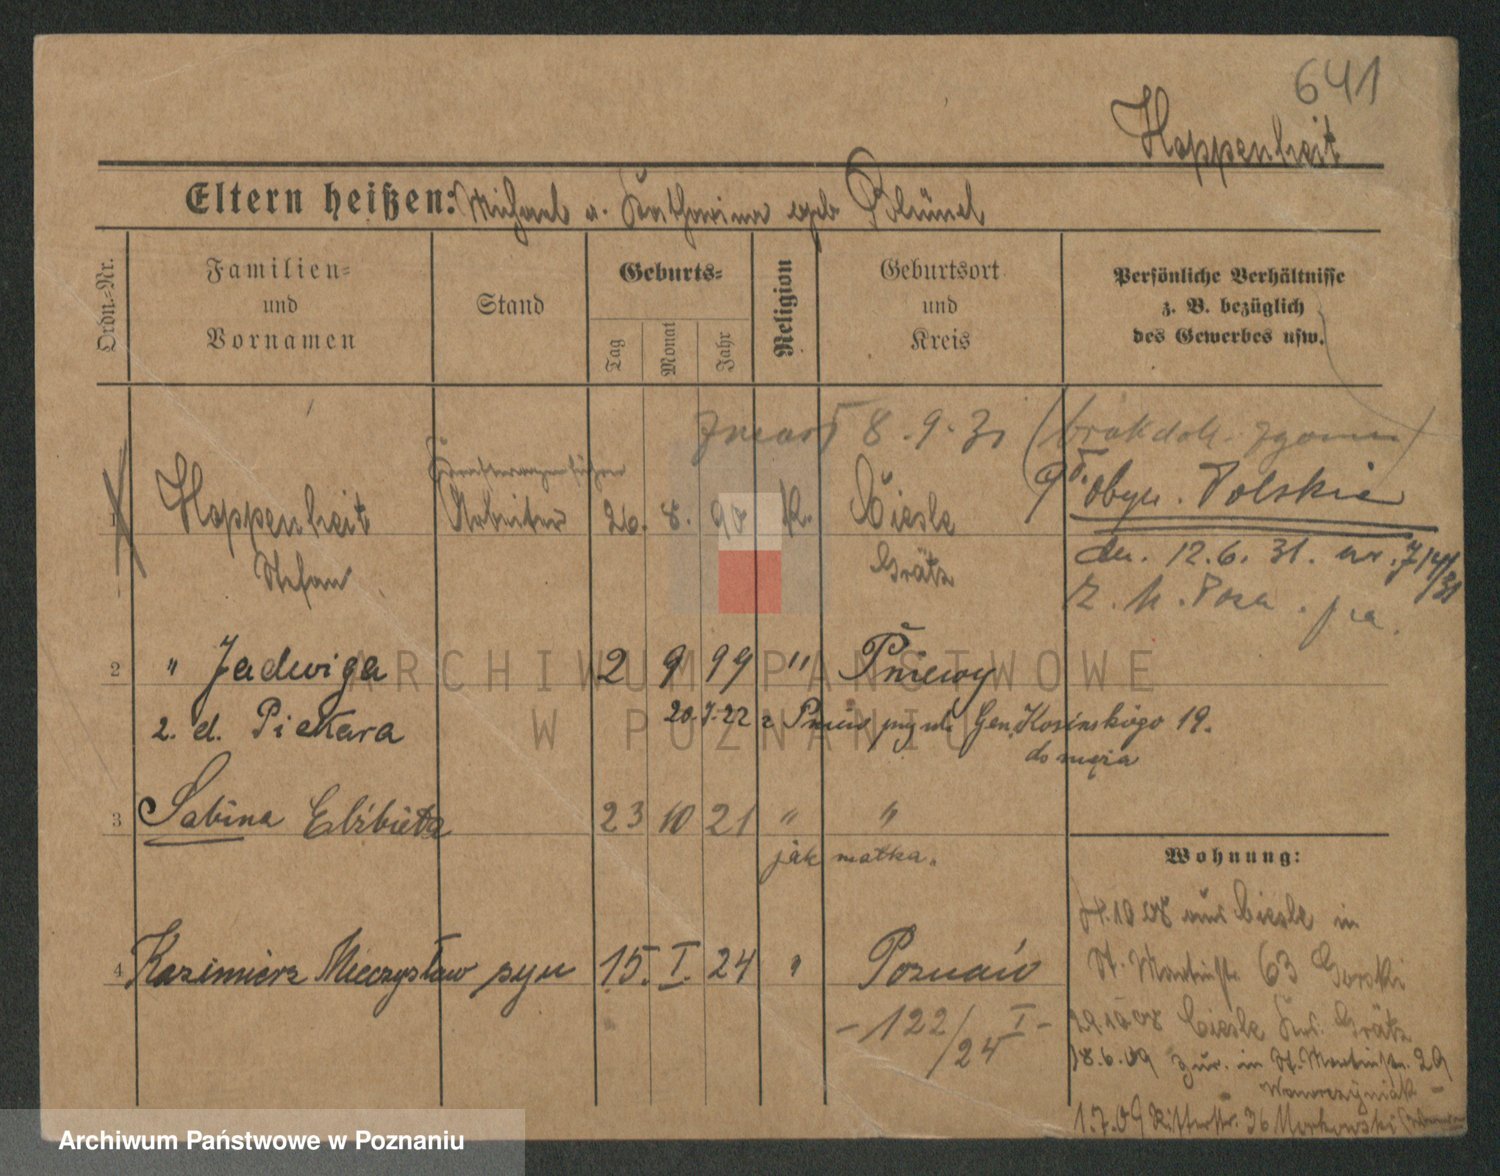 641
Hoppenheit
Eltern heißen: Michael u. Katharina geb. Blümel
Ordn.-Nr.
Familien-
und
Vornamen
Stand
Geburts-
Tag
Monat
Jahr
Religion
Geburtsort
und
Kreis
Persönliche Verhältnisse
z. B. bezüglich
des Gewerbes usw.
zmarł 8.9.31 (brak dok. zgonu)
1 Hoppenheit Arbeiter 26. 8. 90 K. Ciesle
Stefan Grätz
obyw. Polskie
dn. 12.6.31. nr.
2 " Jadwiga 2 9 99 " Pniewy
z. d. Piekara
20.7.22 z Pniew przy ul. Gen. Kosińskiego 19.
do męża
3 Sabina Elżbieta 23 10 21 " "
jak matka.
4 Kazimierz Mieczysław syn 15. I. 24 " Poznań
- 122/24 I -
Wohnung:
10 08 aus Ciesle in
St. Martinstr. 63 Gorski
29.10 08 Ciesle Krs. Grätz
18.6.09 zur. in St. Martinstr. 29
Wawrzyniak -
1.7.09 Ritterstr. 36 Markowski
ARCHIWUM PAŃSTWOWE
W POZNANIU
Archiwum Państwowe w Poznaniu